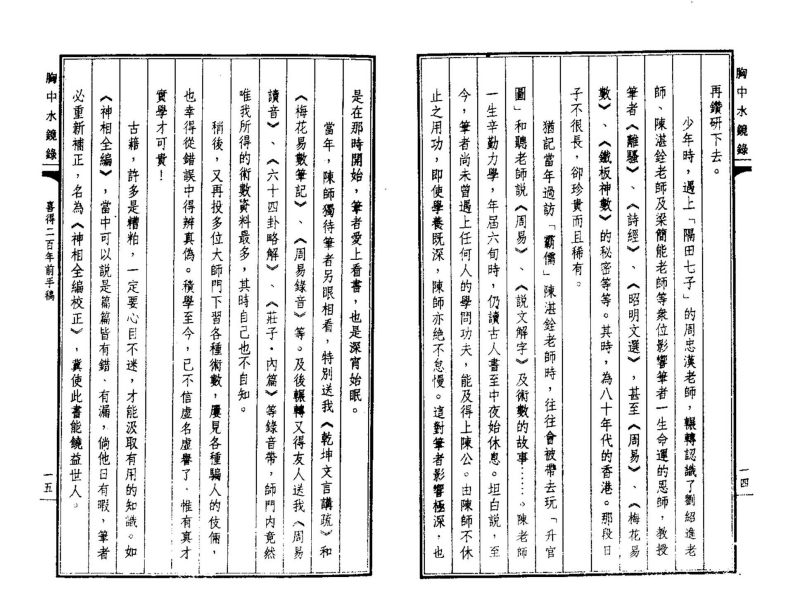 胸中水鏡錄
一四
再鑽研下去。
少年時，遇上「隔田七子」的周忠漢老師，輾轉認識了劉紹進老
師、陳湛銓老師及梁簡能老師等衆位影響筆者一生命運的恩師，教授
筆者《離騷》、《詩經》、《昭明文選》，甚至《周易》、《梅花易
數》、《鐵板神數》的秘密等等。其時，為八十年代的香港。那段日
子不很長，卻珍貴而且稀有。
猶記當年過訪「霸儒」陳湛銓老師時，往往會被帶去玩「升官
圖」和聽老師說《周易》、《說文解字》及術數的故事……。陳老師
一生辛勤力學，年屆六旬時，仍讀古人書至中夜始休息。坦白說，至
今，筆者尚未曾遇上任何人的學問功夫，能及得上陳公。由陳師不休
止之用功，即使學養既深，陳師亦絕不怠慢。這對筆者影響極深，也
是在那時開始，筆者愛上看書，也是深宵始眠。
當年，陳師獨待筆者另眼相看，特別送我《乾坤文言講疏》和
《梅花易數筆記》、《周易錄音》等。及後輾轉又得友人送我《周易
讀音》、《六十四卦略解》、《莊子·內篇》等錄音帶，師門內竟然
唯我所得的術數資料最多，其時自己也不自知。
稍後，又再投多位大師門下習各種術數，屢見各種騙人的伎倆，
也幸得從錯誤中得辨真偽。積學至今，已不信虛名虛譽了，惟有真才
實學才可貴！
古籍，許多是糟粕，一定要心目不迷，才能汲取有用的知識。如
《神相全編》，當中可以說是篇篇皆有錯、有漏，倘他日有暇，筆者
必重新補正，名為《神相全編校正》，冀使此書能饒益世人。
胸中水鏡錄
喜得二百年前手稿
一五